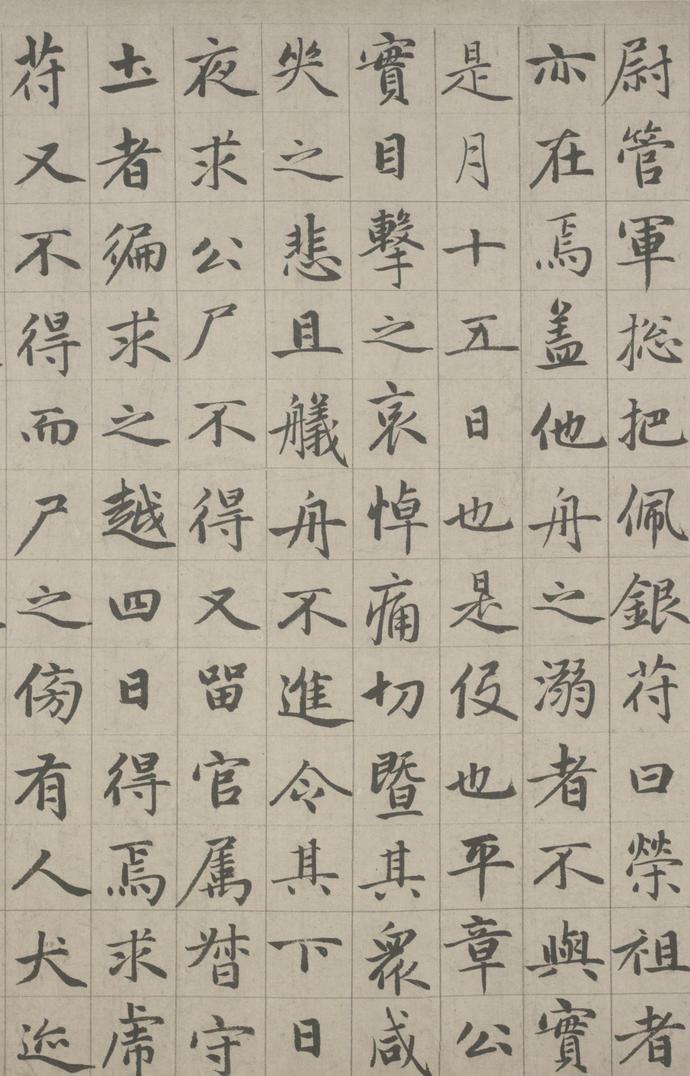 尉管軍総把佩銀苻曰榮祖者
亦在焉盖他舟之溺者不與實
是月十五日也是役也平章公
實目擊之哀悼痛切暨其衆咸
哭之悲且艤舟不進令其下日
夜求公尸不得又留官属督守
土者徧求之越四日得焉求虎
苻又不得而尸之傍有人犬迹